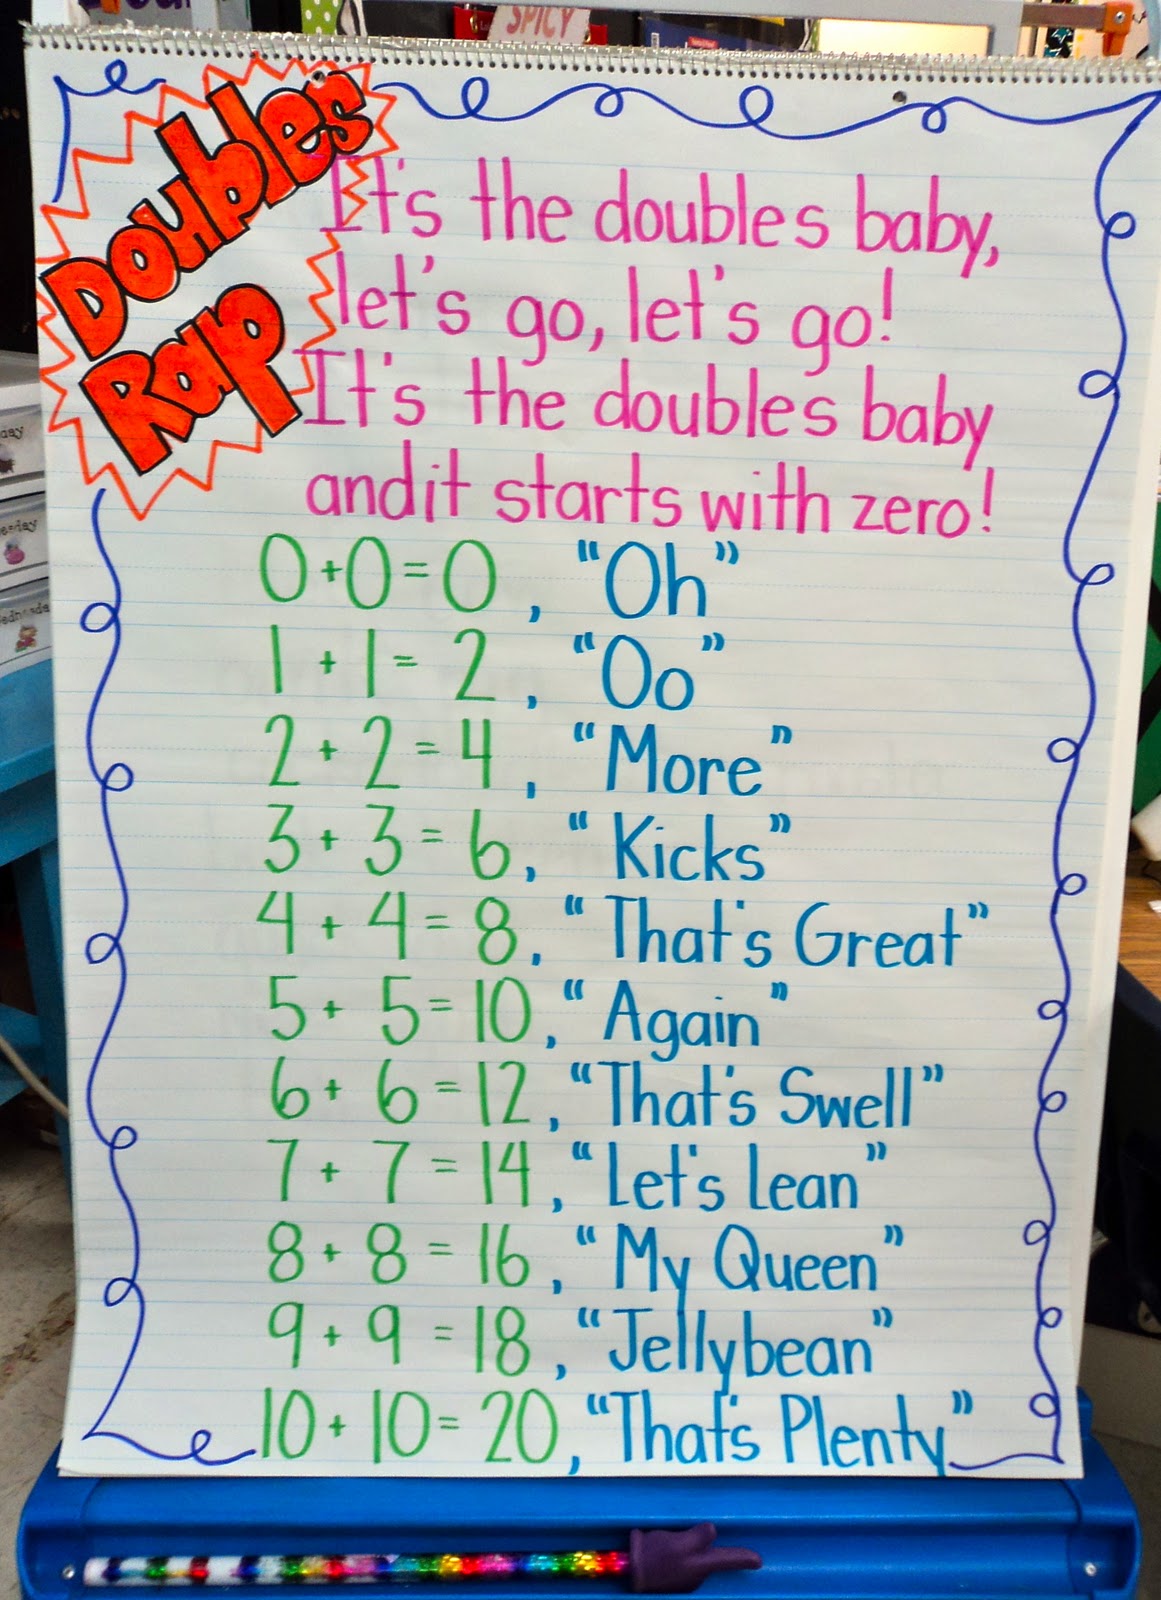 SPICY
Doubles
Rap
It's the doubles baby,
let's go, let's go!
It's the doubles baby
and it starts with zero!
0+0=0, "Oh"
1+1=2, "Oo"
2+2=4, "More"
3+3=6, "Kicks"
4+4=8, "That's Great"
5+5=10, "Again"
6+6=12, "That's Swell"
7+7=14, "Let's lean"
8+8=16, "My Queen"
9+9=18, "Jellybean"
10+10=20, "That's Plenty"